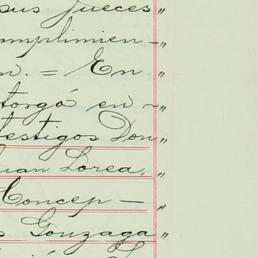 sus jueces „
umplimien- „
n. = En „
torgó en - „
testigos Don „
uan Lorea, „
Concep- „
s Gonzaga „